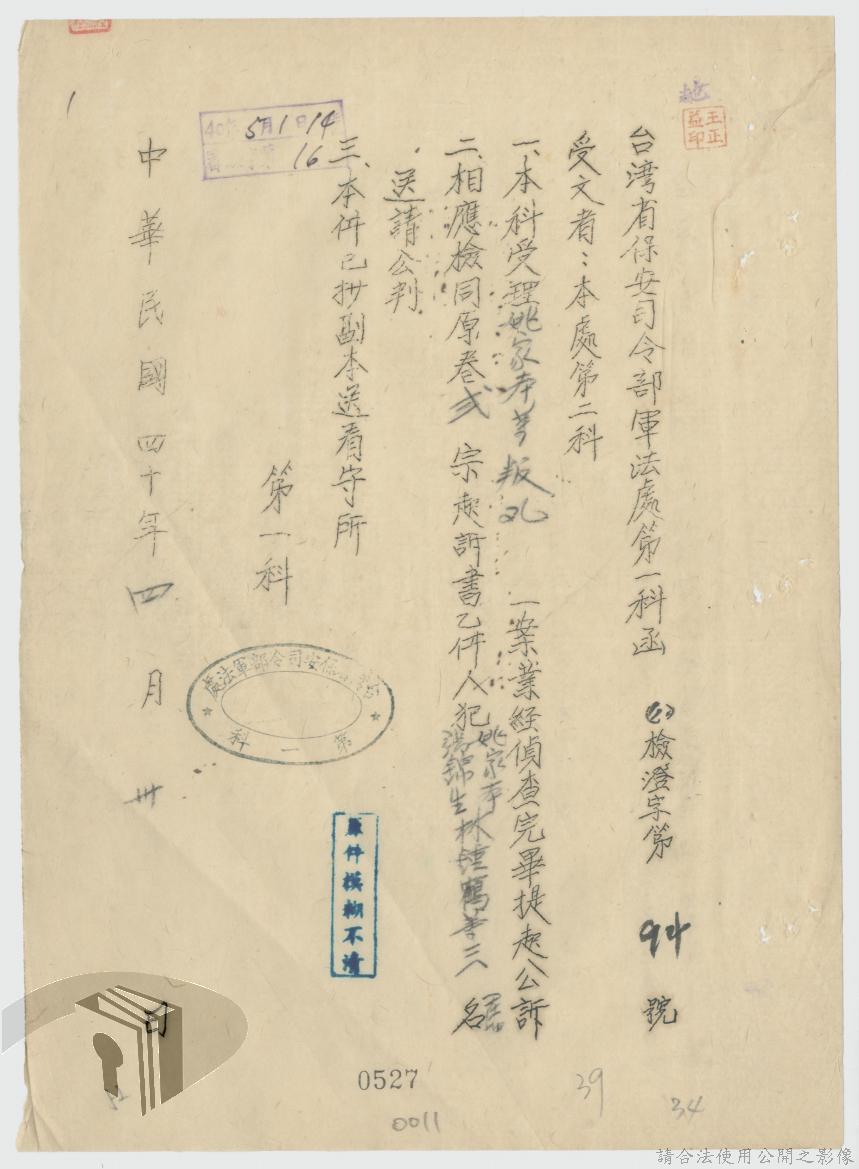 王正
益印
台湾省保安司令部軍法處第一科函 檢澄字第 94 號
受文者：本處第二科
一、本科受理姚家本等叛乱 一案業経偵查完畢提起公訴
二、相應檢同原卷弍 宗起訴書乙件人犯 林鍾鶴等三人 名
送請公判
三、本件已抄副本送看守所
第一科
40年5月1日14
16
中華民國四十年四月卅日
保安司令部軍法處
第一科
原件模糊不清
0527
0011
39
34
請合法使用公開之影像